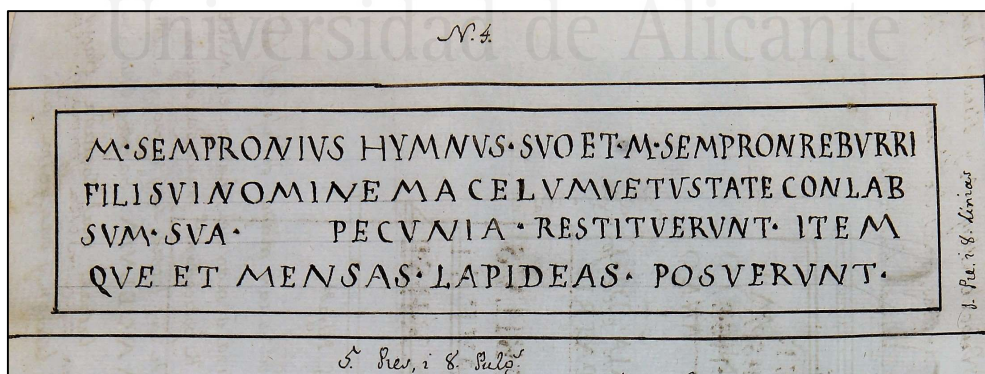 Universidad de Alicante
N. 4.
M·SEMPRONIVS HYMNVS·SVO ET·M·SEMPRONREBVRRI
FILI SVI NOMINE MACELVMVETVSTATE CONLAB
SVM·SVA· PECVNIA·RESTITVERVNT· ITEM
QVE ET MENSAS·LAPIDEAS· POSVERVNT·
5. i 8.
i 8. linias